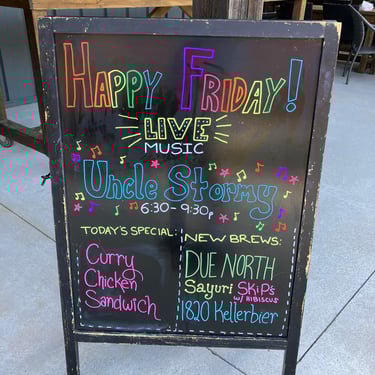 HAPPY FRIDAY!
LIVE
MUSIC
Uncle Stormy
6:30-9:30p
TODAY'S SPECIAL:
Curry
Chicken
Sandwich
NEW BREWS:
DUE NORTH
Sayuri SKiPs
w/ HIBISCUS
1820 Kellerbier